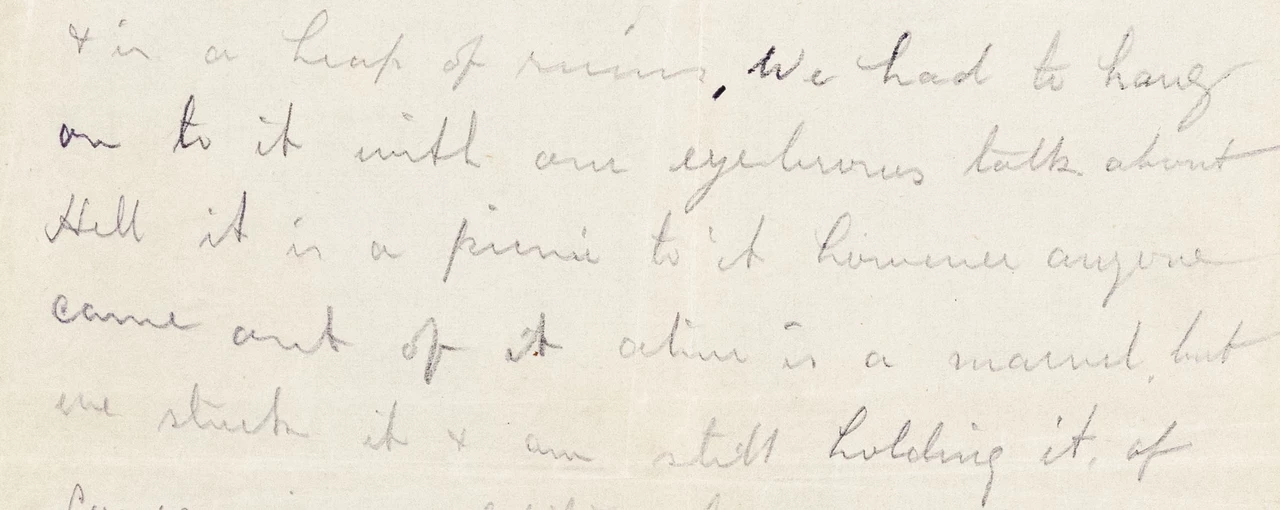 & is a heap of ruins, We had to hang
on to it with our eyebrows talk about
Hell it is a picnic to it however anyone
came out of it alive is a marvel, but
we stuck it & am still holding it, of